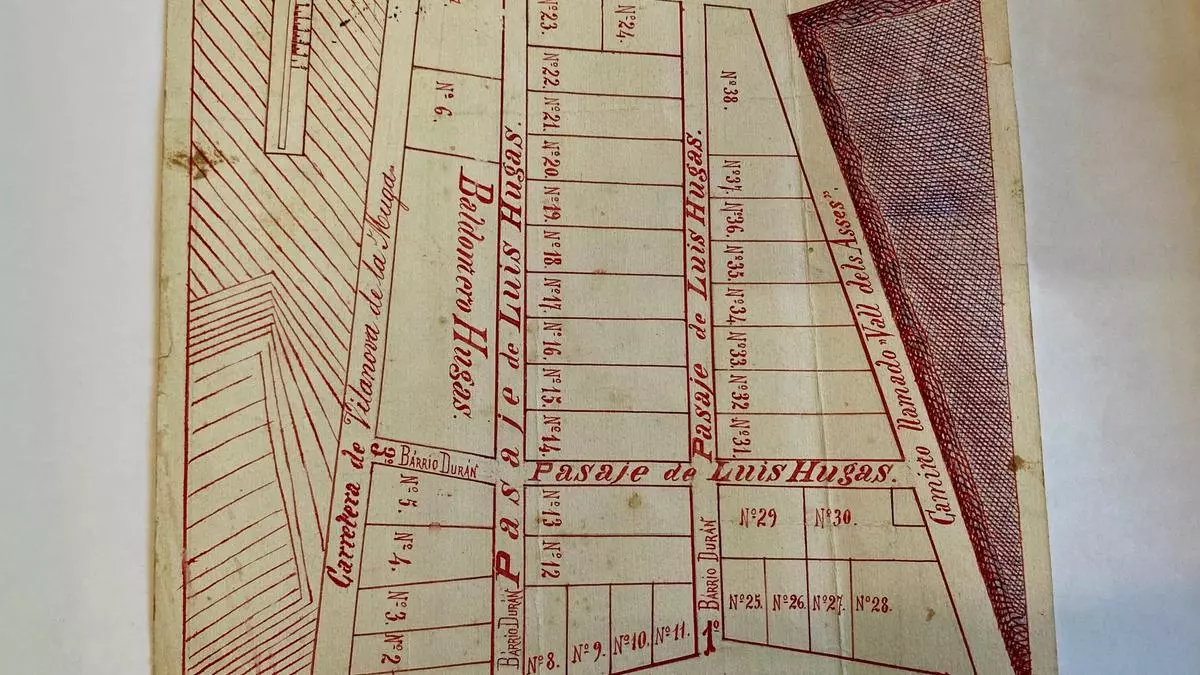 Nº 23.
Nº 24.
Nº 22.
Nº 21.
Nº 20.
Nº 19.
Nº 18.
Nº 17.
Nº 16.
Nº 15.
Nº 14.
Nº 38.
Nº 37.
Nº 36.
Nº 35.
Nº 34.
Nº 33.
Nº 32.
Nº 31.
Nº 6.
Baldomero Hugas.
Carretera de Vilanova de la Muga.
Pasaje de Luis Hugas.
Pasaje de Luis Hugas.
Camino llamado "Vall dels Asses"
Pasaje de Luis Hugas.
3º BÁRRIO DURÁN
Nº 5.
Nº 4.
Nº 3.
Nº 2
BÁRRIO DURÁN
Nº 13
Nº 12
Nº 8.
Nº 9.
Nº 10.
Nº 11.
1º BÁRRIO DURÁN
Nº 29
Nº 30.
Nº 25.
Nº 26.
Nº 27.
Nº 28.